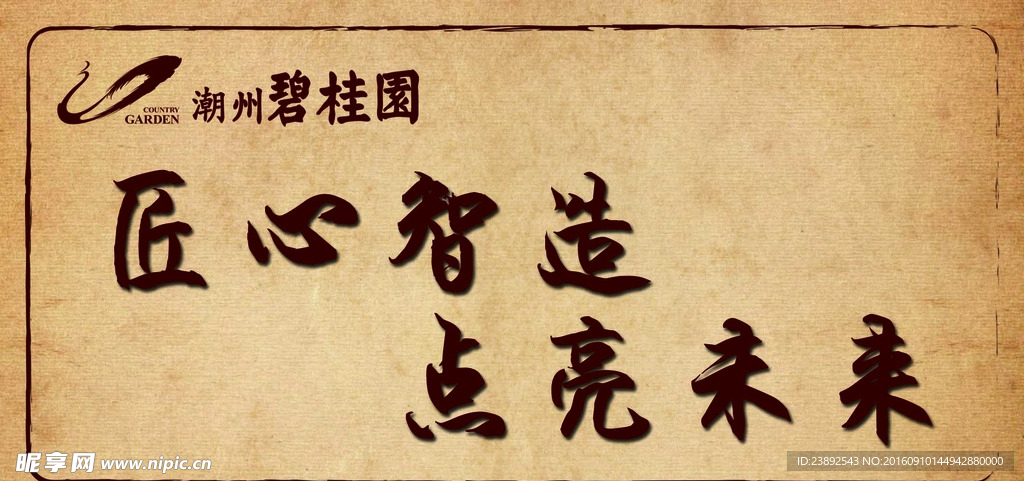 COUNTRY
GARDEN
潮州碧桂園
匠心智造
点亮未来
昵享网 www.nipic.cn
ID:23892543 NO:20160910144942880000